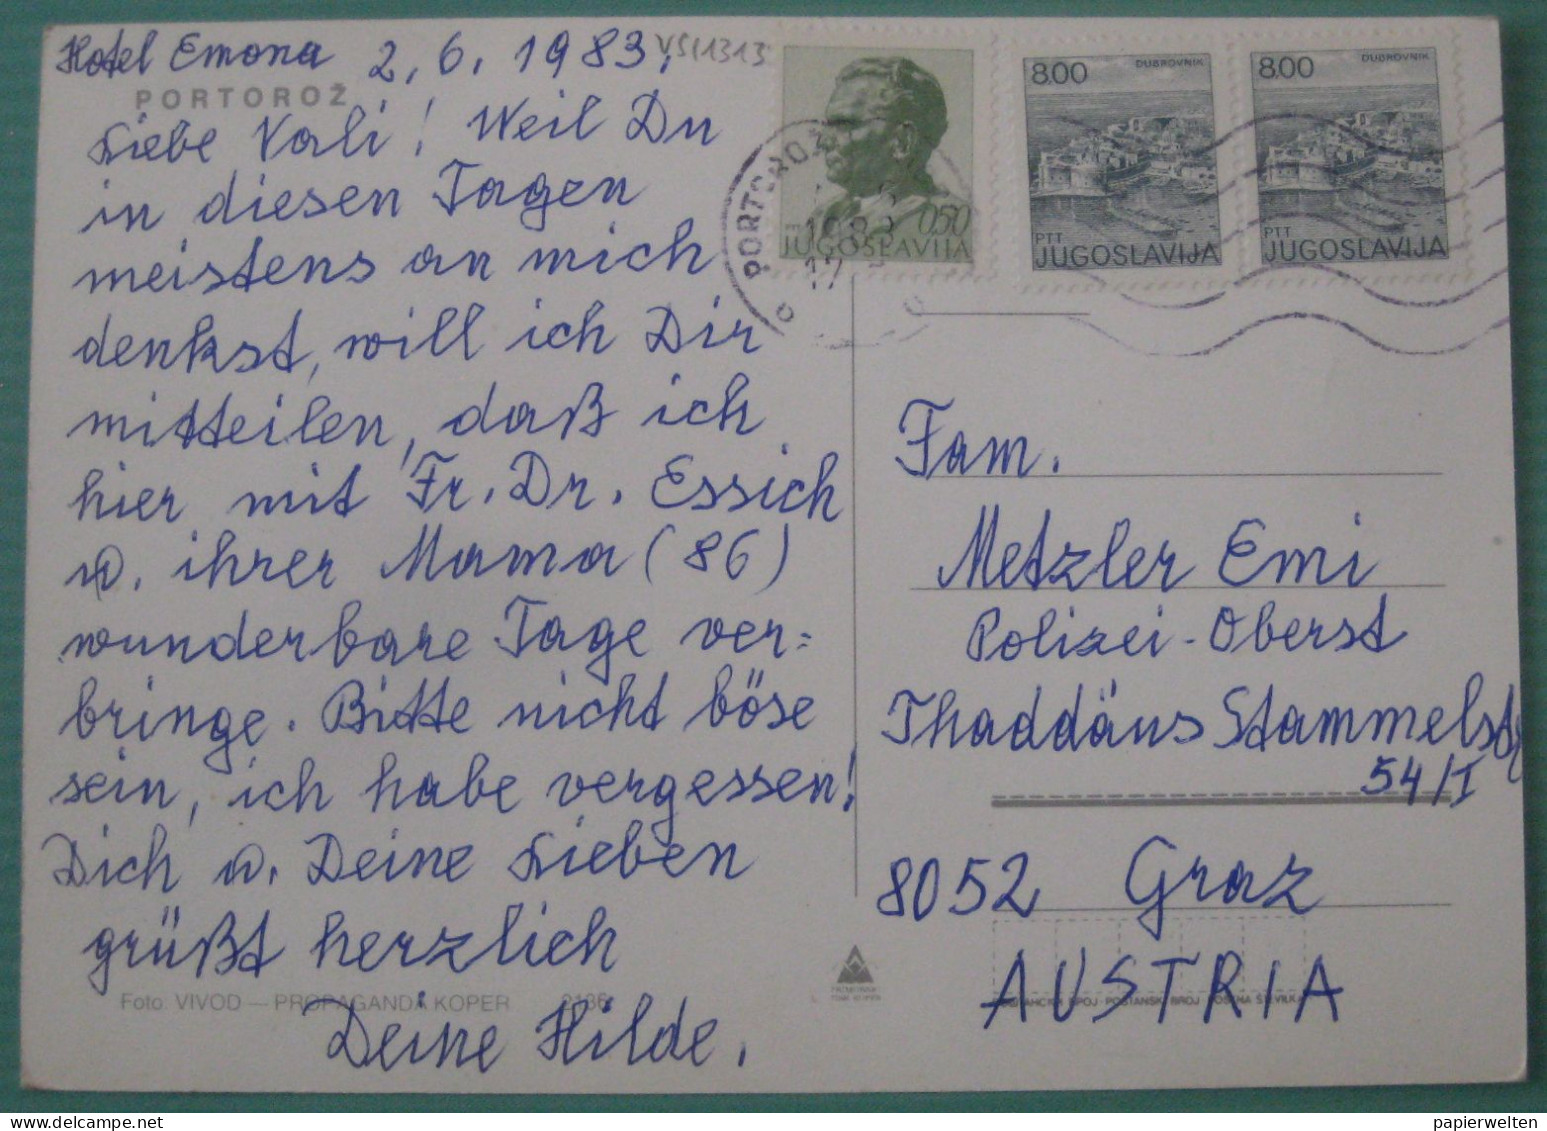 Hotel Emona 2.6.1983.
VS11313
PORTOROŽ
Liebe Vali! Weil Du
in diesen Tagen
meistens an mich
denkst, will ich Dir
mitteilen, daß ich
hier mit Fr. Dr. Essich
u. ihrer Mama (86)
wunderbare Tage ver=
bringe. Bitte nicht böse
sein, ich habe vergessen!
Dich u. Deine Lieben
grüßt herzlich
Deine Hilde.
Foto VIVOD — PROPAGANDA KOPER 2136
050
JUGOSLAVIJA
PORTOROŽ
8.00 DUBROVNIK
PTT
JUGOSLAVIJA
8.00 DUBROVNIK
PTT
JUGOSLAVIJA
Fam.
Metzler Emi
Polizei-Oberst
Thaddäus Stammelstr
54/I
8052 Graz
AUSTRIA
papierwelten